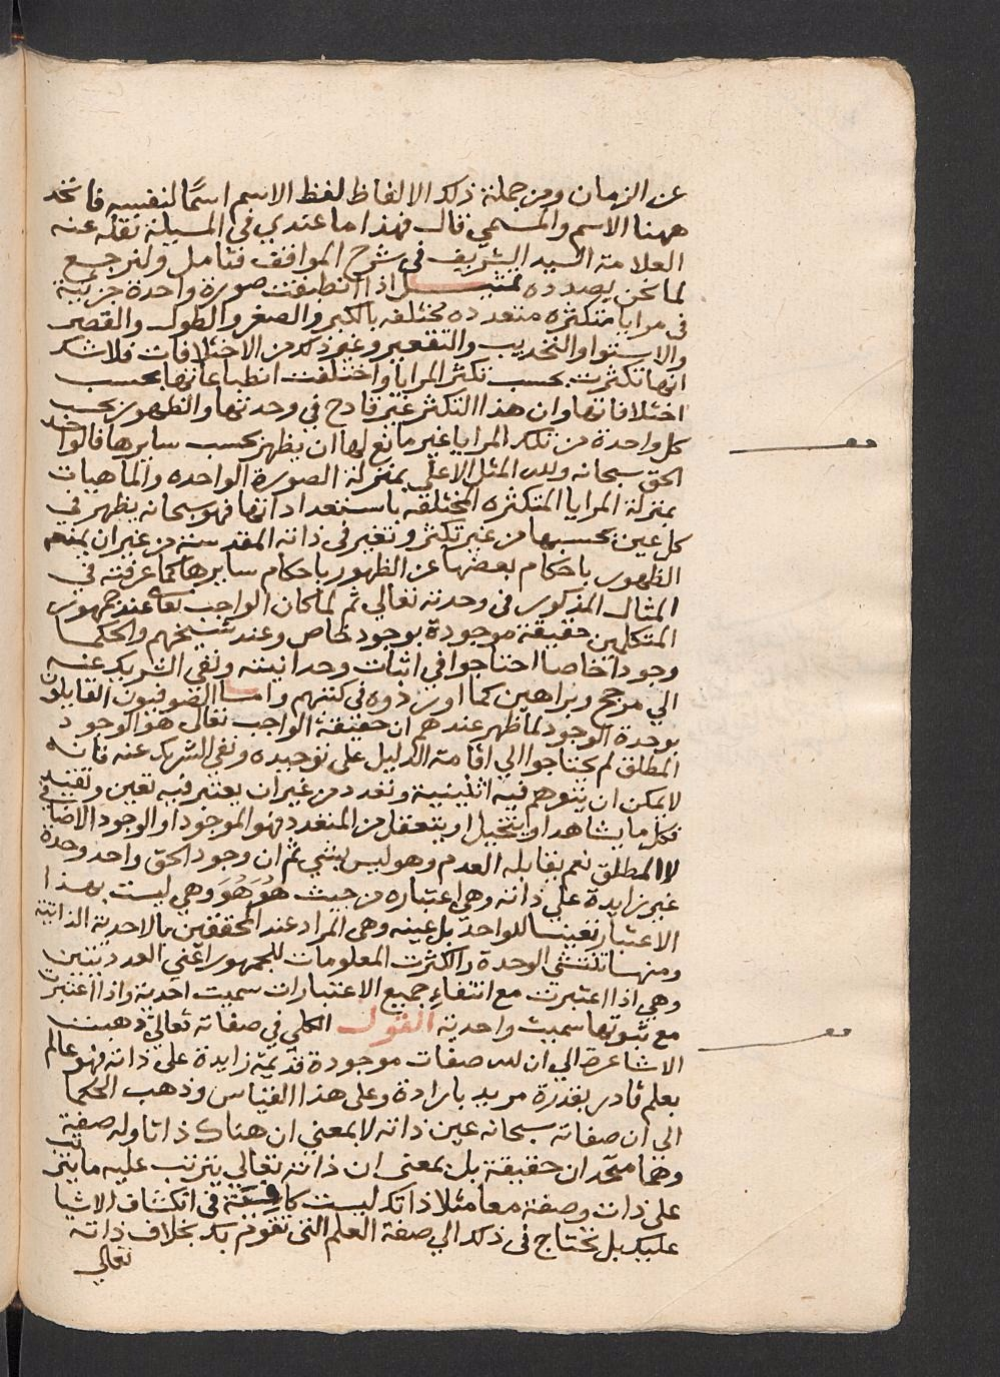 عن الزمان ومن جملة ذلك الالفاظ لفظ الاسم اسمًا لنفسه فاتحد
ههنا الاسم والمسمي قال فهذا ما عندي في المسيلة نقله عنه
العلامة السيد الشريف في شرح المواقف فتامل ولنرجع
لما نحن بصدده تمثيل اذا انطبقت صورة واحدة جزيية
في مرايا متكثره متعدده مختلفه بالكبر والصغر والطول والقصر
والاستوا والتحديب والتقعير وغير ذلك من الاختلافات فلا شك
انها تكثرت بحسب تكثر المرايا واختلفت انطباعاتها بحسب
اختلافاتها وان هذا التكثر غير قادح في وحدتها والظهور بحسب
كل واحدة من تلك المرايا غير مانع لها ان يظهر بحسب سايرها فالواحد
الحق سبحانه ولله المثل الاعلي بمنزلة الصورة الواحده والماهيات
بمنزلة المرايا المتكثره المختلفه باستعداداتها فهو سبحانه يظهر في
كل عين بحسبها من غير تكثر وتغير في ذاته المقدسة من غير ان يمنعه
الظهور باحكام بعضها عن الظهور باحكام سايرها كما عرفته في
المثال المذكور في وحدته تعالي ثم لما كان الواجب تعالي عند جمهور
المتكلمين حقيقة موجودة بوجود خاص وعند شيخهم والحكما
وجودا خاصا احتاجوا في اثبات وحدانيته ونفي الشريك عنه
الي مرجح وبراهين كما اوردوه في كتبهم واما الصوفيون القايلون
بوحدة الوجود لما ظهر عندهم ان حقيقة الواجب تعالي هو الوجود
المطلق لم يحتاجوا الي اقامة الدليل على توحيده ونفي الشريك عنه فانه
لا يمكن ان يتوهم فيه اثنينية وتعدد من غير ان يعتبر فيه تعين وتقييد
فكل ما يشاهد او يتخيل او يتعقل من المتعدد فهو الموجود او الوجود الاضافي
لا المطلق نعم يقابله العدم وهو ليس بشي ثم ان وجود الحق واحد وحدة
غير زايدة علي ذاته وهي اعتباره من حيث هُوَ هُوَ وهي ليست بهذا
الاعتبار نعتا للواحد بل عينه وهي المراد عند المحققين بالاحدية الذاتية
ومنها تنتشي الوحدة والكثرت المعلومات للجمهور اعني العدديتين
وهي اذا اعتبرت مع انتفاء جميع الاعتبارات سميت احدية واذا اعتبرت
مع ثبوتها سميت واحدية القول الكلي في صفاته تعالي ذهبت
الاشاعرة الي ان لله صفات موجودة قديمة زايدة على ذاته فهو عالم
بعلم قادر بقدرة مريد بارادة وعلى هذا القياس وذهب الحكما
الى ان صفاته سبحانه عين ذاته لا بمعني ان هناك ذاتا وله صفة
وهما متحدان حقيقة بل بمعنى ان ذاته تعالي يترتب عليه ما يترتب
على ذات وصفة معا مثلا ذاتك ليست كافية في انكشاف الاشيا
عليك بل تحتاج في ذلك الي صفة العلم التي تقوم بك بخلاف ذاته
تعالي